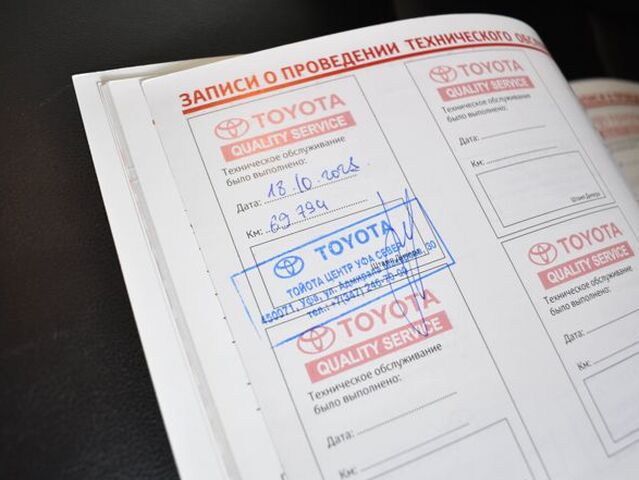 ЗАПИСИ О ПРОВЕДЕНИИ ТЕХНИЧЕСКОГО
TOYOTA
QUALITY SERVICE
Техническое обслуживание
было выполнено:
Дата: 18.10.2025
Км: 69 794
TOYOTA
ТОЙОТА ЦЕНТР УФА СЕВЕР
450071, Уфа, ул. Адмирала 30
тел.: +7(347) 246-70-09
TOYOTA
QUALITY SERVICE
Техническое обслуживание
было выполнено:
Дата:
Км:
TOYOTA
QUALITY SERVICE
Техническое обслуживание
было выполнено:
Дата:
Км:
Штамп Дилера
TOYOTA
QUALITY SERVICE
Техническое обслуживание
было выполнено:
Дата:
Км: